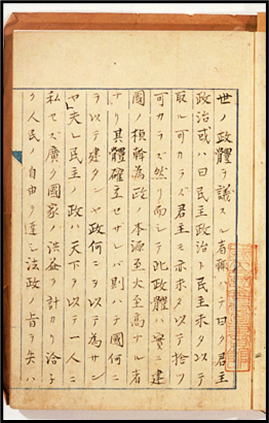 世ノ政體ヲ議スル者輙ハチ曰ク君主
政治或ハ曰民主政治ト民主未タ以テ
取ル可カラズ君主モ亦未タ以テ捨ツ
可カラズ然リ而シテ此政體ハ實ニ建
國ノ楨幹為政ノ本源至大至高ナル者
ナリ其體確立セザレバ則ハチ國何ニ
ヲ以テ建タンヤ政何ニヲ以テ為サン
ヤ夫レ民主ノ政ハ天下ヲ以テ一人ニ
私セズ廣ク國家ノ洪益ヲ計カリ洽子
ク人民ノ自由ヲ達シ法政ノ旨ヲ失ハ